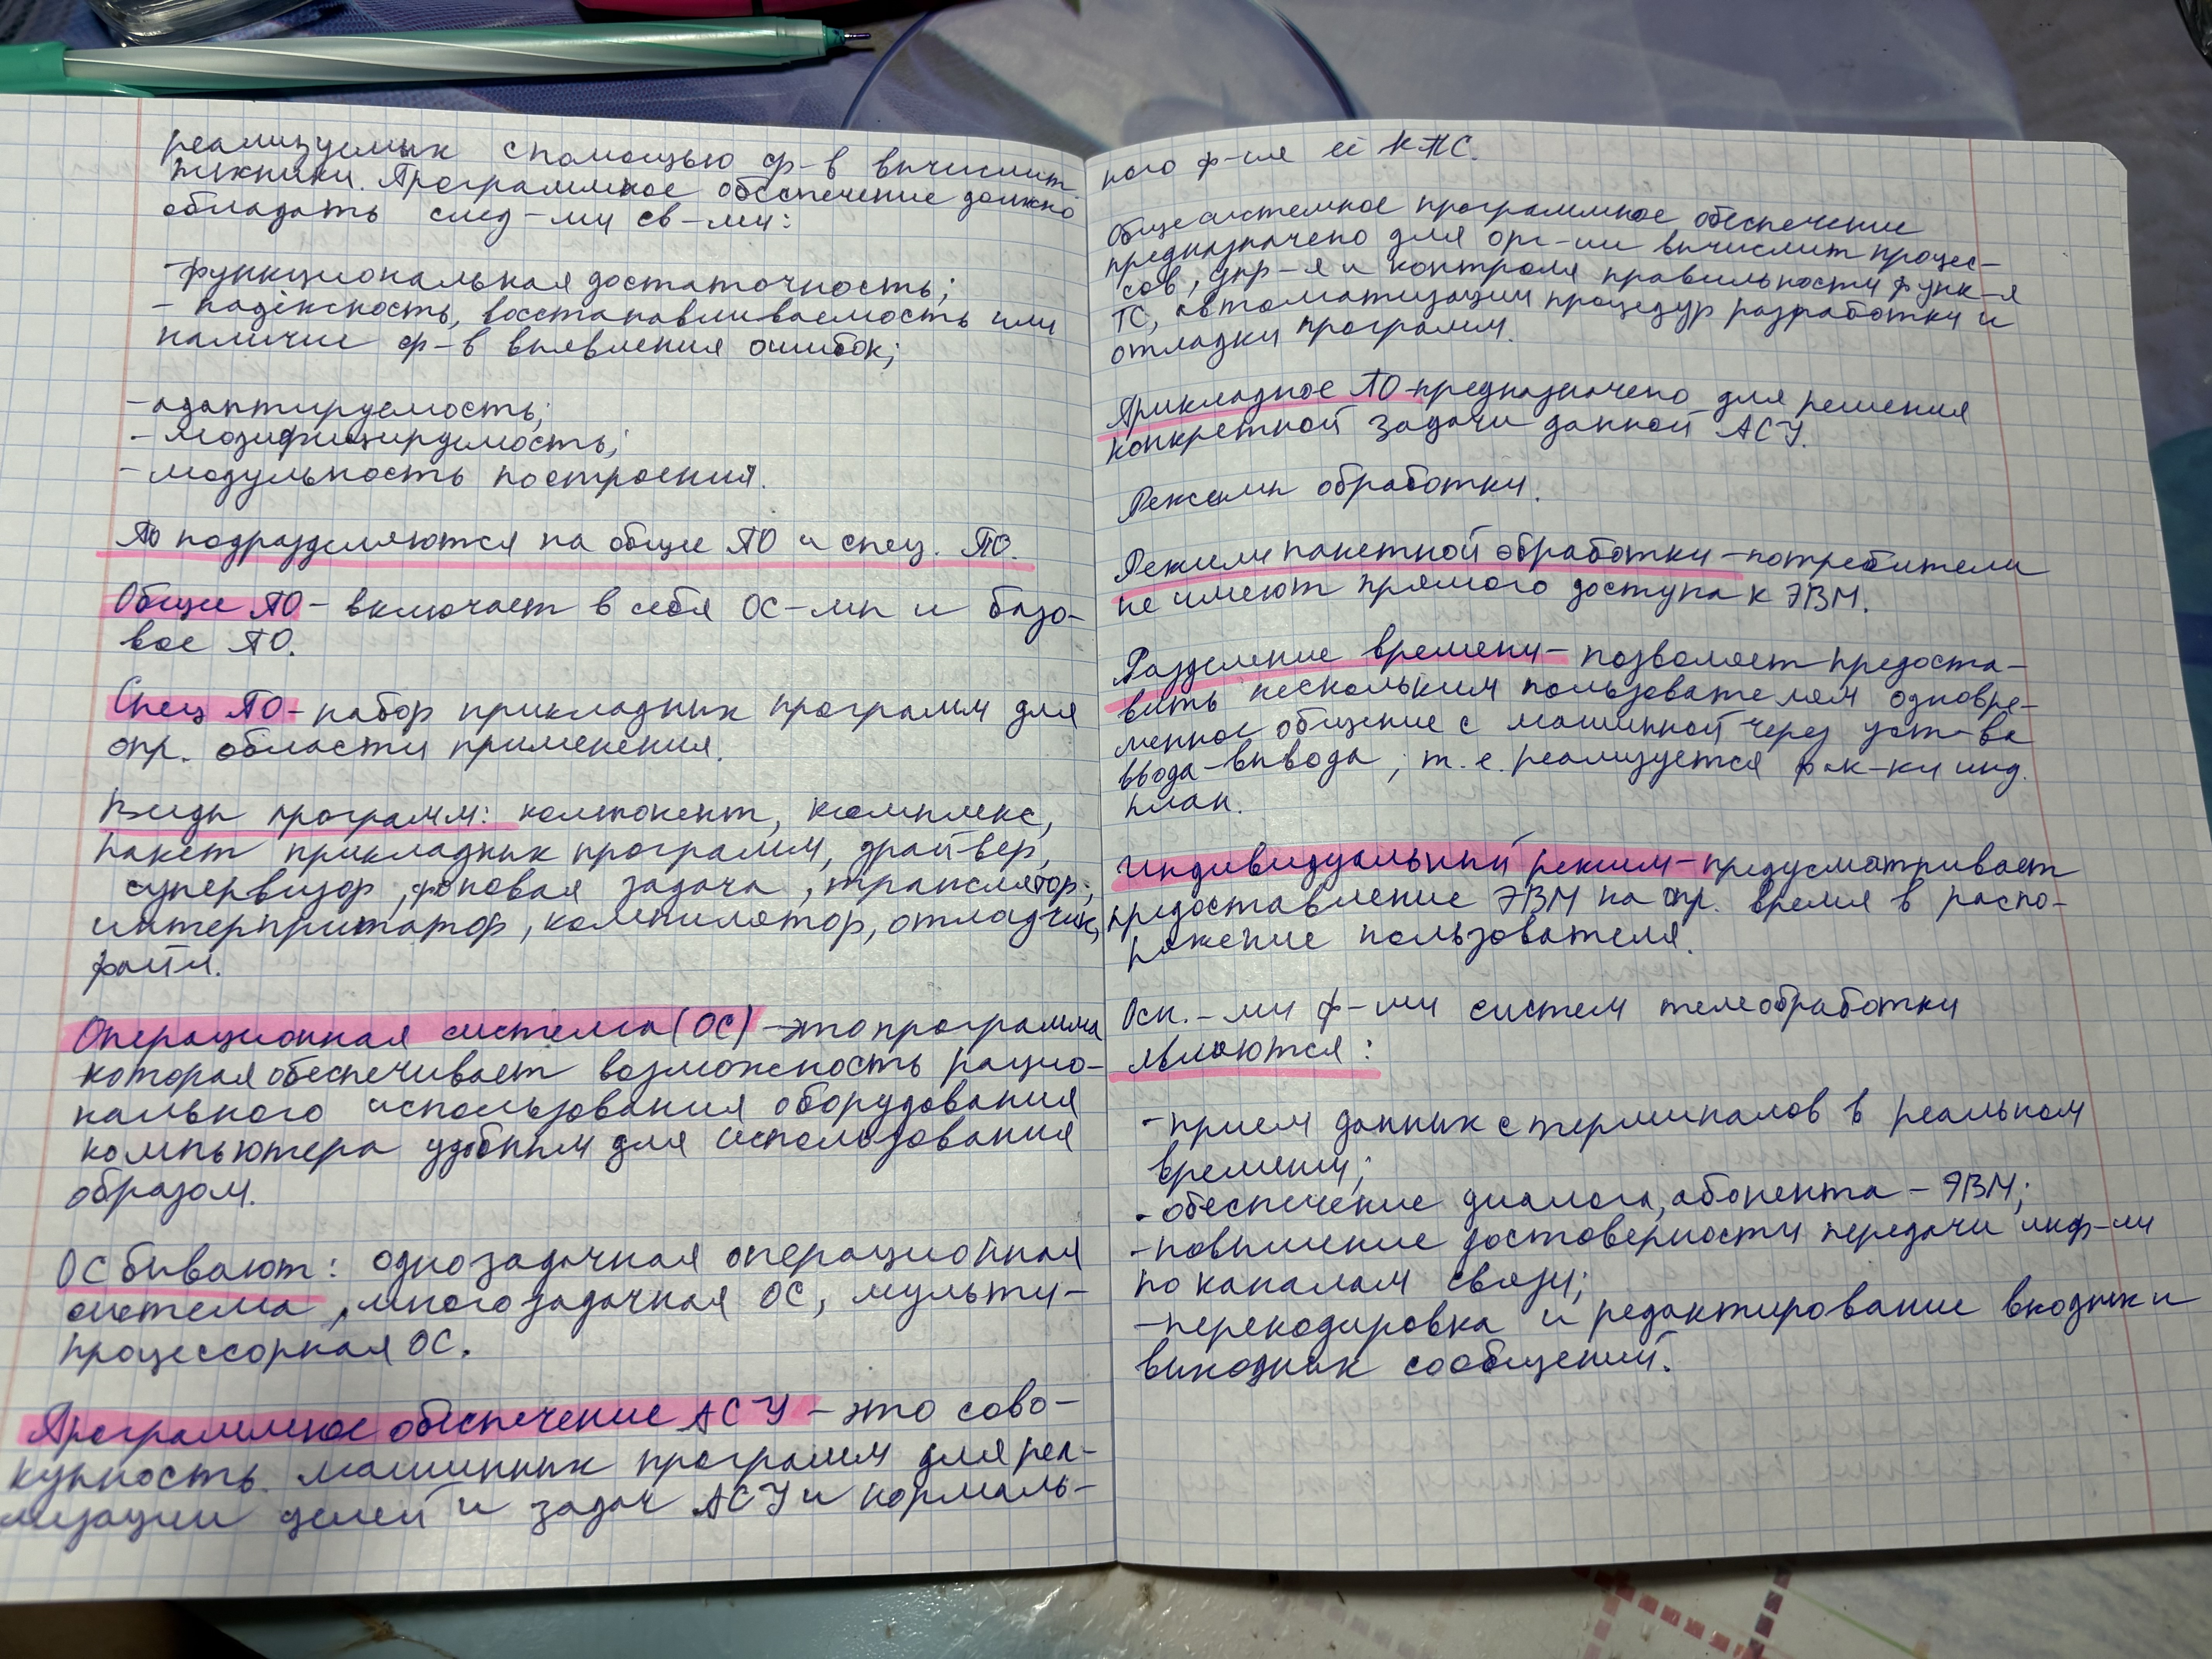 реализуемых с помощью ср-в вычислит
техники. Программное обеспечение должно
обладать след-ми св-ми:
-функциональная достаточность;
- надёжность, восстанавливаемость или
наличие ср-в выявления ошибок;
-адаптируемость;
- модифицируемость;
-модульность построения.
ПО подразделяются на общие ПО и спец. ПО.
Общие ПО - включает в себя ОС-мы и базо-
вое ПО.
Спец ПО - набор прикладных программ для
опр. области применения.
Виды программ: компонент, комплекс,
пакет прикладных программ, драйвер,
супервизор, фоновая задача, транслятор,
интерпритатор, компилятор, отладчик,
файл.
Операционная система (ОС) - это программа
которая обеспечивает возможность рацио-
нального использования оборудования
компьютера удобным для использования
образом.
ОС бывают: однозадачная операционная
система, многозадачная ОС, мульти-
процессорная ОС.
Программное обеспечение АСУ - это сово-
купность машинных программ для реа-
лизации целей и задач АСУ и нормаль-
ного ф-ия её КТС.
Общесистемное программное обеспечение
предназначено для орг-ии вычислит процес-
сов, упр-я и контроля правильности функ-я
ТС, автоматизации процедур разработки и
отладки программ.
Прикладное ПО - предназначено для решения
конкретной задачи данной АСУ.
Режимы обработки.
Режим пакетной обработки - потребители
не имеют прямого доступа к ЭВМ.
Разделение времени - позволяет предоста-
вить нескольким пользователям одновре-
менное общение с машинной через уст-ва
ввода-вывода; т.е. реализуется инд.
план.
Индивидуальный режим - предусматривает
предоставление ЭВМ на опр. время в распо-
ряжение пользователя.
Осн.-ми ф-ми систем телеобработки
являются:
-прием данных с терминалов в реальном
времени;
-обеспечение диалога, абонента - ЭВМ;
-повышение достоверности передачи инф-ии
по каналам связи;
-перекодировка и редактирование входных и
выходных сообщений.